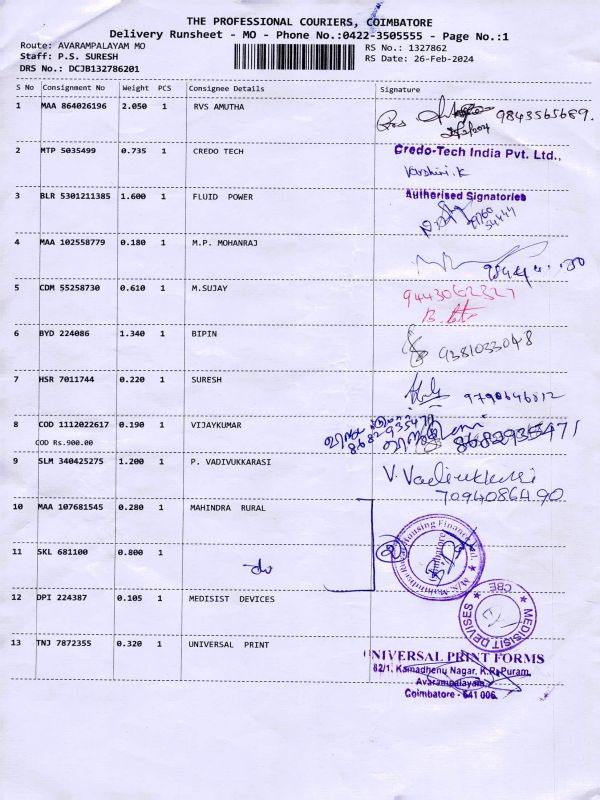 THE PROFESSIONAL COURIERS, COIMBATORE
Delivery Runsheet - MO - Phone No.:0422-3505555 - Page No.:1
Route: AVARAMPALAYAM MO
RS No.: 1327862
Staff: P.S. SURESH
RS Date: 26-Feb-2024
DRS No.: DCJB132786201
S No Consignment No Weight PCS Consignee Details Signature
1 MAA 864026196 2.050 1 RVS AMUTHA 9843565689.
2 MTP 5035499 0.735 1 CREDO TECH Credo-Tech India Pvt. Ltd.,
Varshini.K
3 BLR 5301211385 1.600 1 FLUID POWER Authorised Signatories
4 MAA 102558779 0.180 1 M.P. MOHANRAJ
5 CDM 55258730 0.610 1 M.SUJAY 9443062327
6 BYD 224086 1.340 1 BIPIN 9381033048
7 HSR 7011744 0.220 1 SURESH 9790646812
8 COD 1112022617 0.190 1 VIJAYKUMAR 8682935471
8682935471
COD Rs.900.00
9 SLM 340425275 1.200 1 P. VADIVUKKARASI V. Vadivukkarasi
7094086490
10 MAA 107681545 0.280 1 MAHINDRA RURAL
11 SKL 681100 0.800 1 do
12 DPI 224387 0.105 1 MEDISIST DEVICES MEDISIST DEVISES CBE
13 TNJ 7872355 0.320 1 UNIVERSAL PRINT UNIVERSAL PRINT FORMS
82/1, Kamadhenu Nagar, K.R. Puram,
Avarampalayam,
Coimbatore - 641 006.